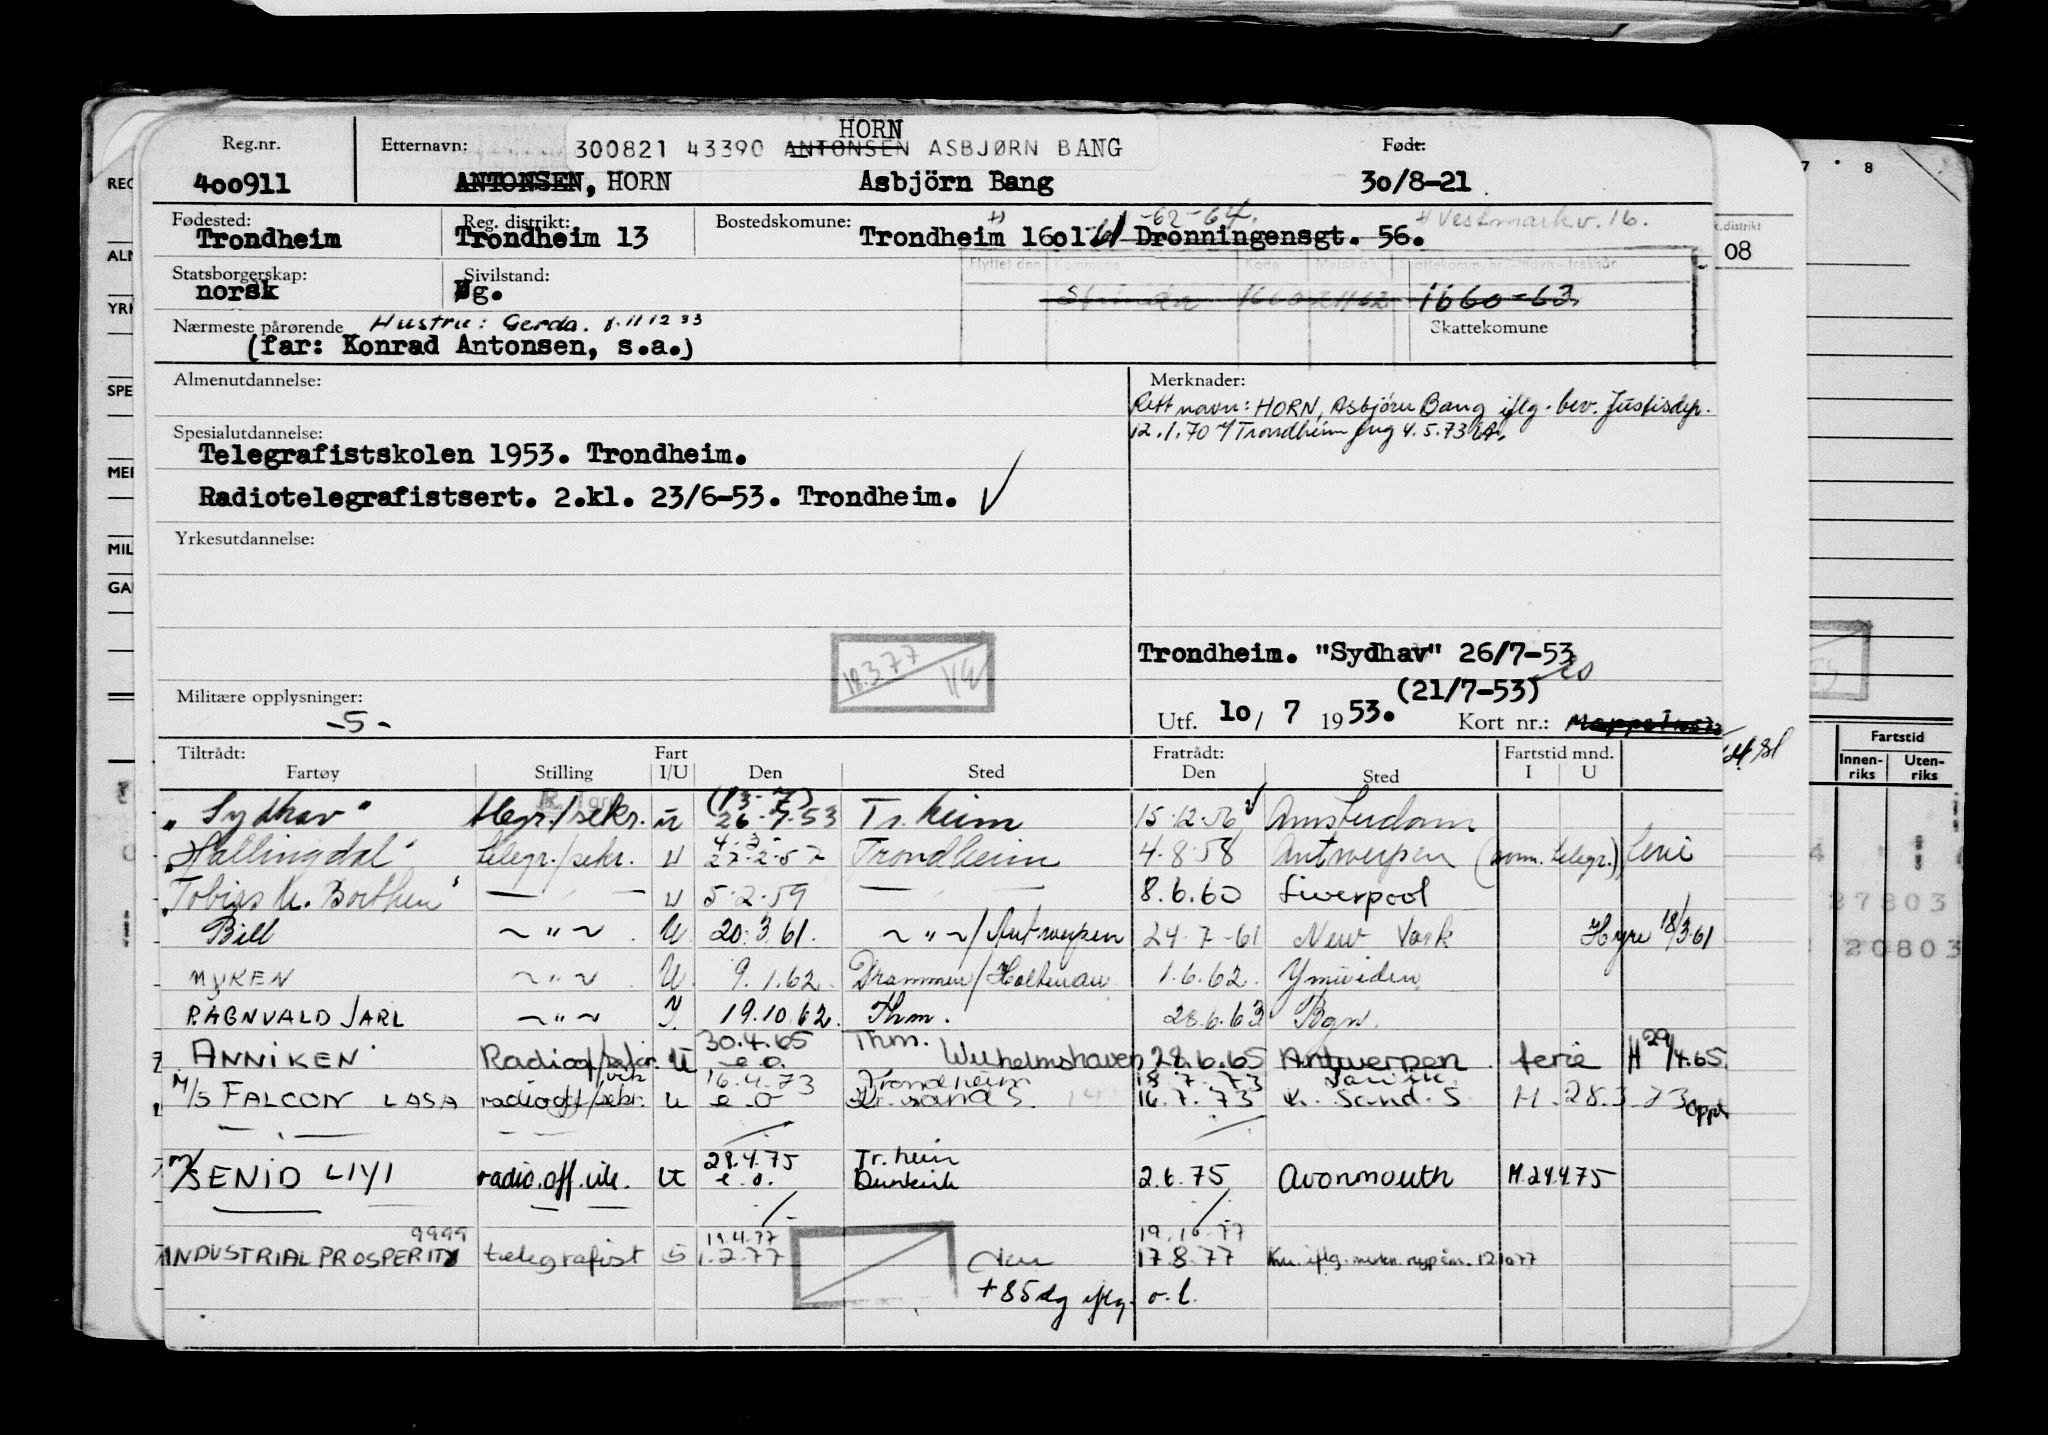 HORN
Reg.nr. Etternavn: 300821 43390 ANTONSEN ASBJØRN BANG Født:
400911 ANTONSEN, HORN Asbjörn Bang 30/8-21
Fødested: Reg. distrikt: Bostedskomune: -62-64. Vestmarkv. 16.
Trondheim Trondheim 13 Trondheim 1601 Dronningensgt. 56.
Statsborgerskap: Sivilstand: Flyttet den Kommune Kode
norsk g. 1660-63
Nærmeste pårørende Hustru: Gerda. f. 11 12 33 Skattekomune
(far: Konrad Antonsen, s.a.)
Almenutdannelse: Merknader:
Rett navn: HORN, Asbjørn Bang iflg. bev. Justisdep.
12.1.70 Trondheim 4.5.73
Spesialutdannelse:
Telegrafistskolen 1953. Trondheim.
Radiotelegrafistsert. 2.kl. 23/6-53. Trondheim.
Yrkesutdannelse:
Trondheim. "Sydhav" 26/7-53
18.3.77
(21/7-53)
Militære opplysninger: Utf. 10/ 7 1953. Kort nr.:
-5-
Tiltrådt: Fart Fratrådt: Fartstid mnd.
Fartøy Stilling I/U Den Sted Den Sted I U
(13-7)
"Sydhav" telegr./sekr. u 26.7.53 Tr.heim 15.12.56 Amsterdam
4.3
"Hallingdal" telegr./sekr. u 27.2.57 Trondheim 4.8.58 Antwerpen (norm. telegr.) ferie
"Tobias U. Borthen" — u 5.2.59 — 8.6.60 Liverpool
Bill ~ " ~ U 20.3.61. ~ " ~/Antwerpen 24.7.61 New York Hyre 18/3.61
MYKEN ~ " ~ U 9.1.62. Drammen/Holtenau 1.6.62. Ymuiden
RAGNVALD JARL ~ " ~ I 19.10.62. Thm. 28.6.63 Bgn.
30.4.65 Thm.
ANNIKEN Radiooff/sekr. U e.o. Wilhelmshaven 28.6.65 Antwerpen ferie H 29/4.65.
vik 16.4.73 Trondheim 18.7.73
M/S FALCON LASA radiooff/sekr. u e.o Kr.sand S. 16.7.73 K.Sand.S H. 28.3.73 oppl
29.4.75 Tr.heim
M/S ENID radio.off.vik. U e.o. Dunkirk 2.6.75 Avonmouth H.24.4.75
9999 19.4.77 19.10.77
INDUSTRIAL PROSPERITY telegrafist 5 1.2.77 17.8.77
+85dg iflg. o.l.
REG
ALM
YRK
SPE
MER
MIL
GA
7 8
distrikt
08
Fartstid
Innen- Uten-
riks riks
37803
20803